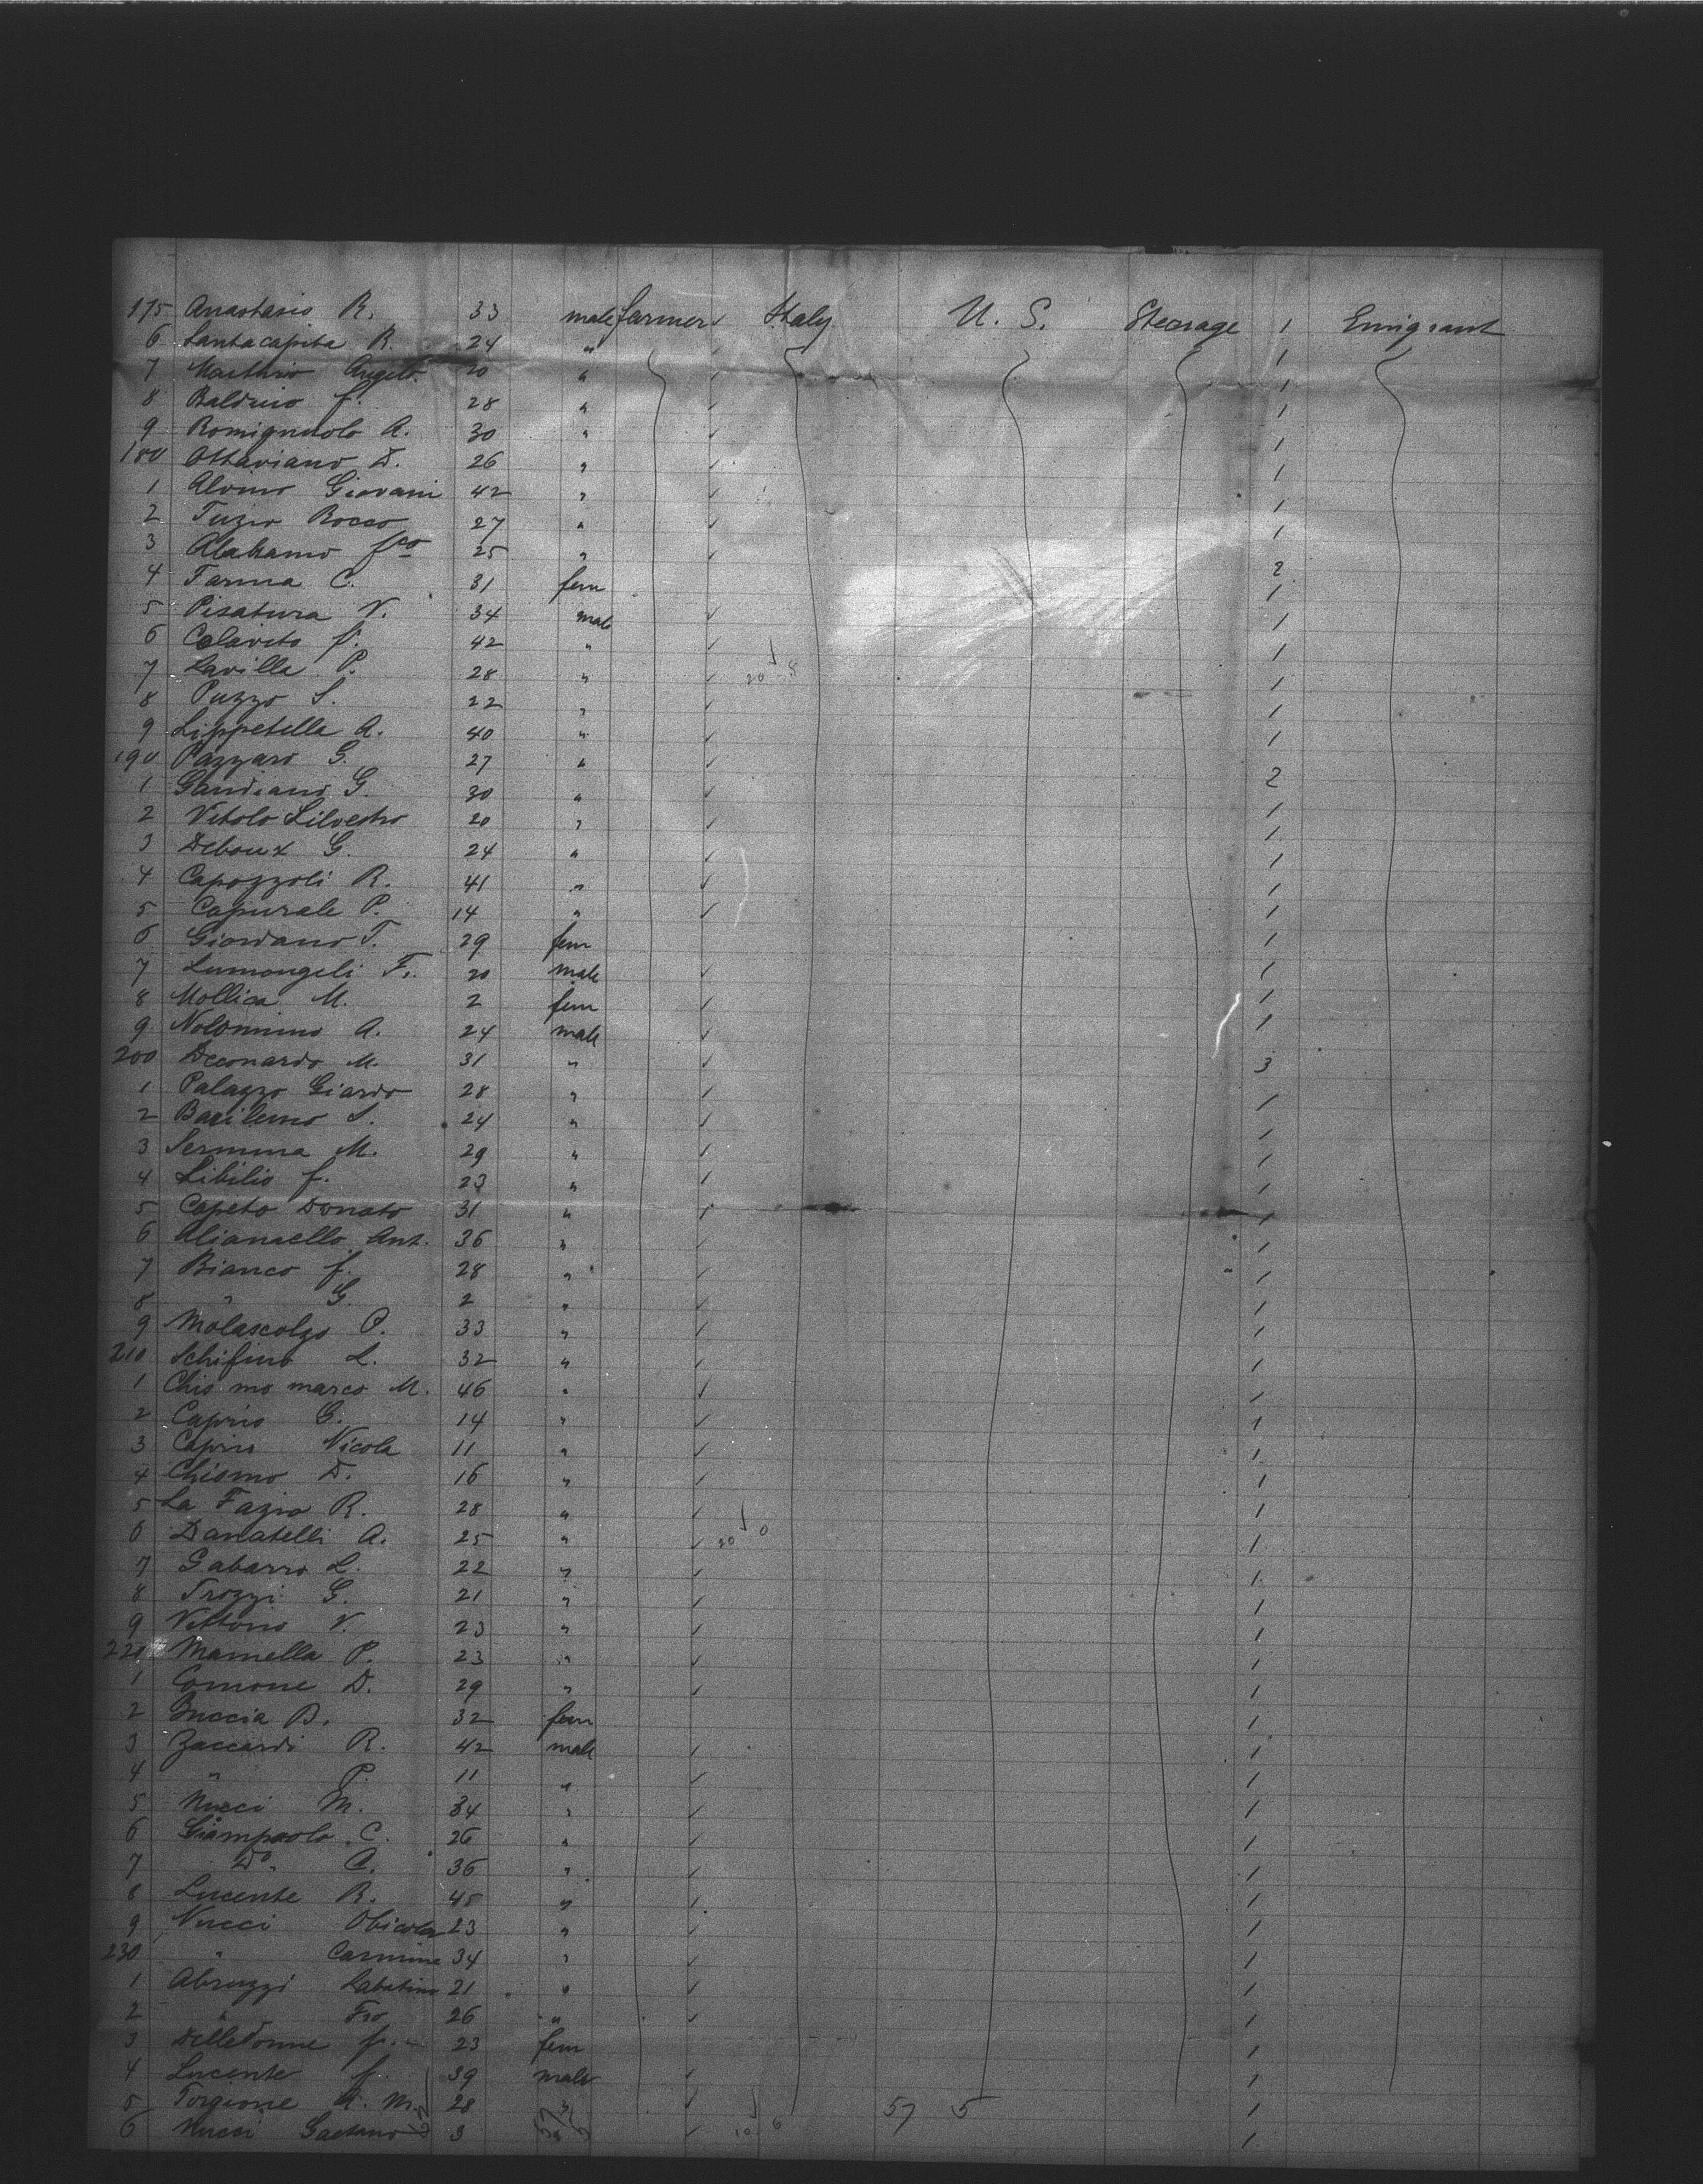 175 Anastasio R. 33 male farmer ✓ Italy U. S. Steerage 1 Emigrant
6 Santacapita R. 24 " ✓ 1
7 Angelo 20 " ✓ 1
8 Balduio f. 28 " ✓ 1
9 Romignuolo A. 30 " ✓ 1
180 Ottaviano D. 26 " ✓ 1
1 Alvino Giovani 42 " ✓ 1
2 Tuzio Rocco 27 " ✓ 1
3 fco 25 " ✓ 2
4 Farina C. 31 fem 1
5 Pisatura V. 34 male ✓ 1
6 Calavito f. 42 " ✓ 1
7 Lavilla P. 28 " ✓ 20 1
8 Puzzo S. 22 " ✓ 1
9 Lippetella A. 40 " ✓ 1
190 Pazzaro G. 27 " ✓ 2
1 Gaudiano G. 30 " ✓ 1
2 Vitolo Silvestro 20 " ✓ 1
3 Deboux G. 24 " ✓ 1
4 Capozzoli R. 41 " ✓ 1
5 Capurale P. 14 " ✓ 1
6 Giordano T. 29 fem 1
7 Lumongeli F. 20 male ✓ 1
8 Mollica M. 2 fem ✓ 1
9 A. 24 male ✓ 1
200 Deconardo M. 31 " ✓ 3
1 Palazzo Giardo 28 " ✓ 1
2 Barilemo S. 24 " ✓ 1
3 Sermina M. 29 " ✓ 1
4 Libilio f. 23 " ✓ 1
5 Capeto Donato 31 " ✓ 1
6 Alianiello Ant. 36 " ✓ 1
7 Bianco f. 28 " ✓ 1
8 " G. 2 " ✓ 1
9 Molascolzo P. 33 " ✓ 1
210 Schifino L. 32 " ✓ 1
1 Chis mo marco M. 46 " ✓ 1
2 Caprio G. 14 " ✓ 1
3 Caprio Nicola 11 " ✓ 1
4 Chismo D. 16 " ✓ 1
5 La Fazio R. 28 " ✓ 1
6 Danatelli A. 25 " ✓ 20 0 1
7 Gabarro L. 22 " ✓ 1
8 Trozzi G. 21 " ✓ 1
9 Vittorio V. 23 " ✓ 1
220 Mamella P. 23 " ✓ 1
1 Comone D. 29 " ✓ 1
2 Buccia B. 32 fem 1
3 Zaccardi R. 42 male ✓ 1
4 " P. 11 " ✓ 1
5 Nucci M. 34 " ✓ 1
6 Giampaolo C. 26 " ✓ 1
7 Do. A. 36 " ✓ 1
8 Lucente R. 45 " ✓ 1
9 Nucci Obicola 23 " ✓ 1
230 " Carmine 34 " ✓ 1
1 Abruzzi Sabatino 21 " ✓ 1
2 " Fco 26 " ✓ 1
3 DelleDonne f. 23 fem 1
4 Lucente f. 39 male ✓ 1
5 Torgione A. M. 28 " ✓ 57 5 1
6 Nucci Gaetano 3 " ✓ 10 6 1